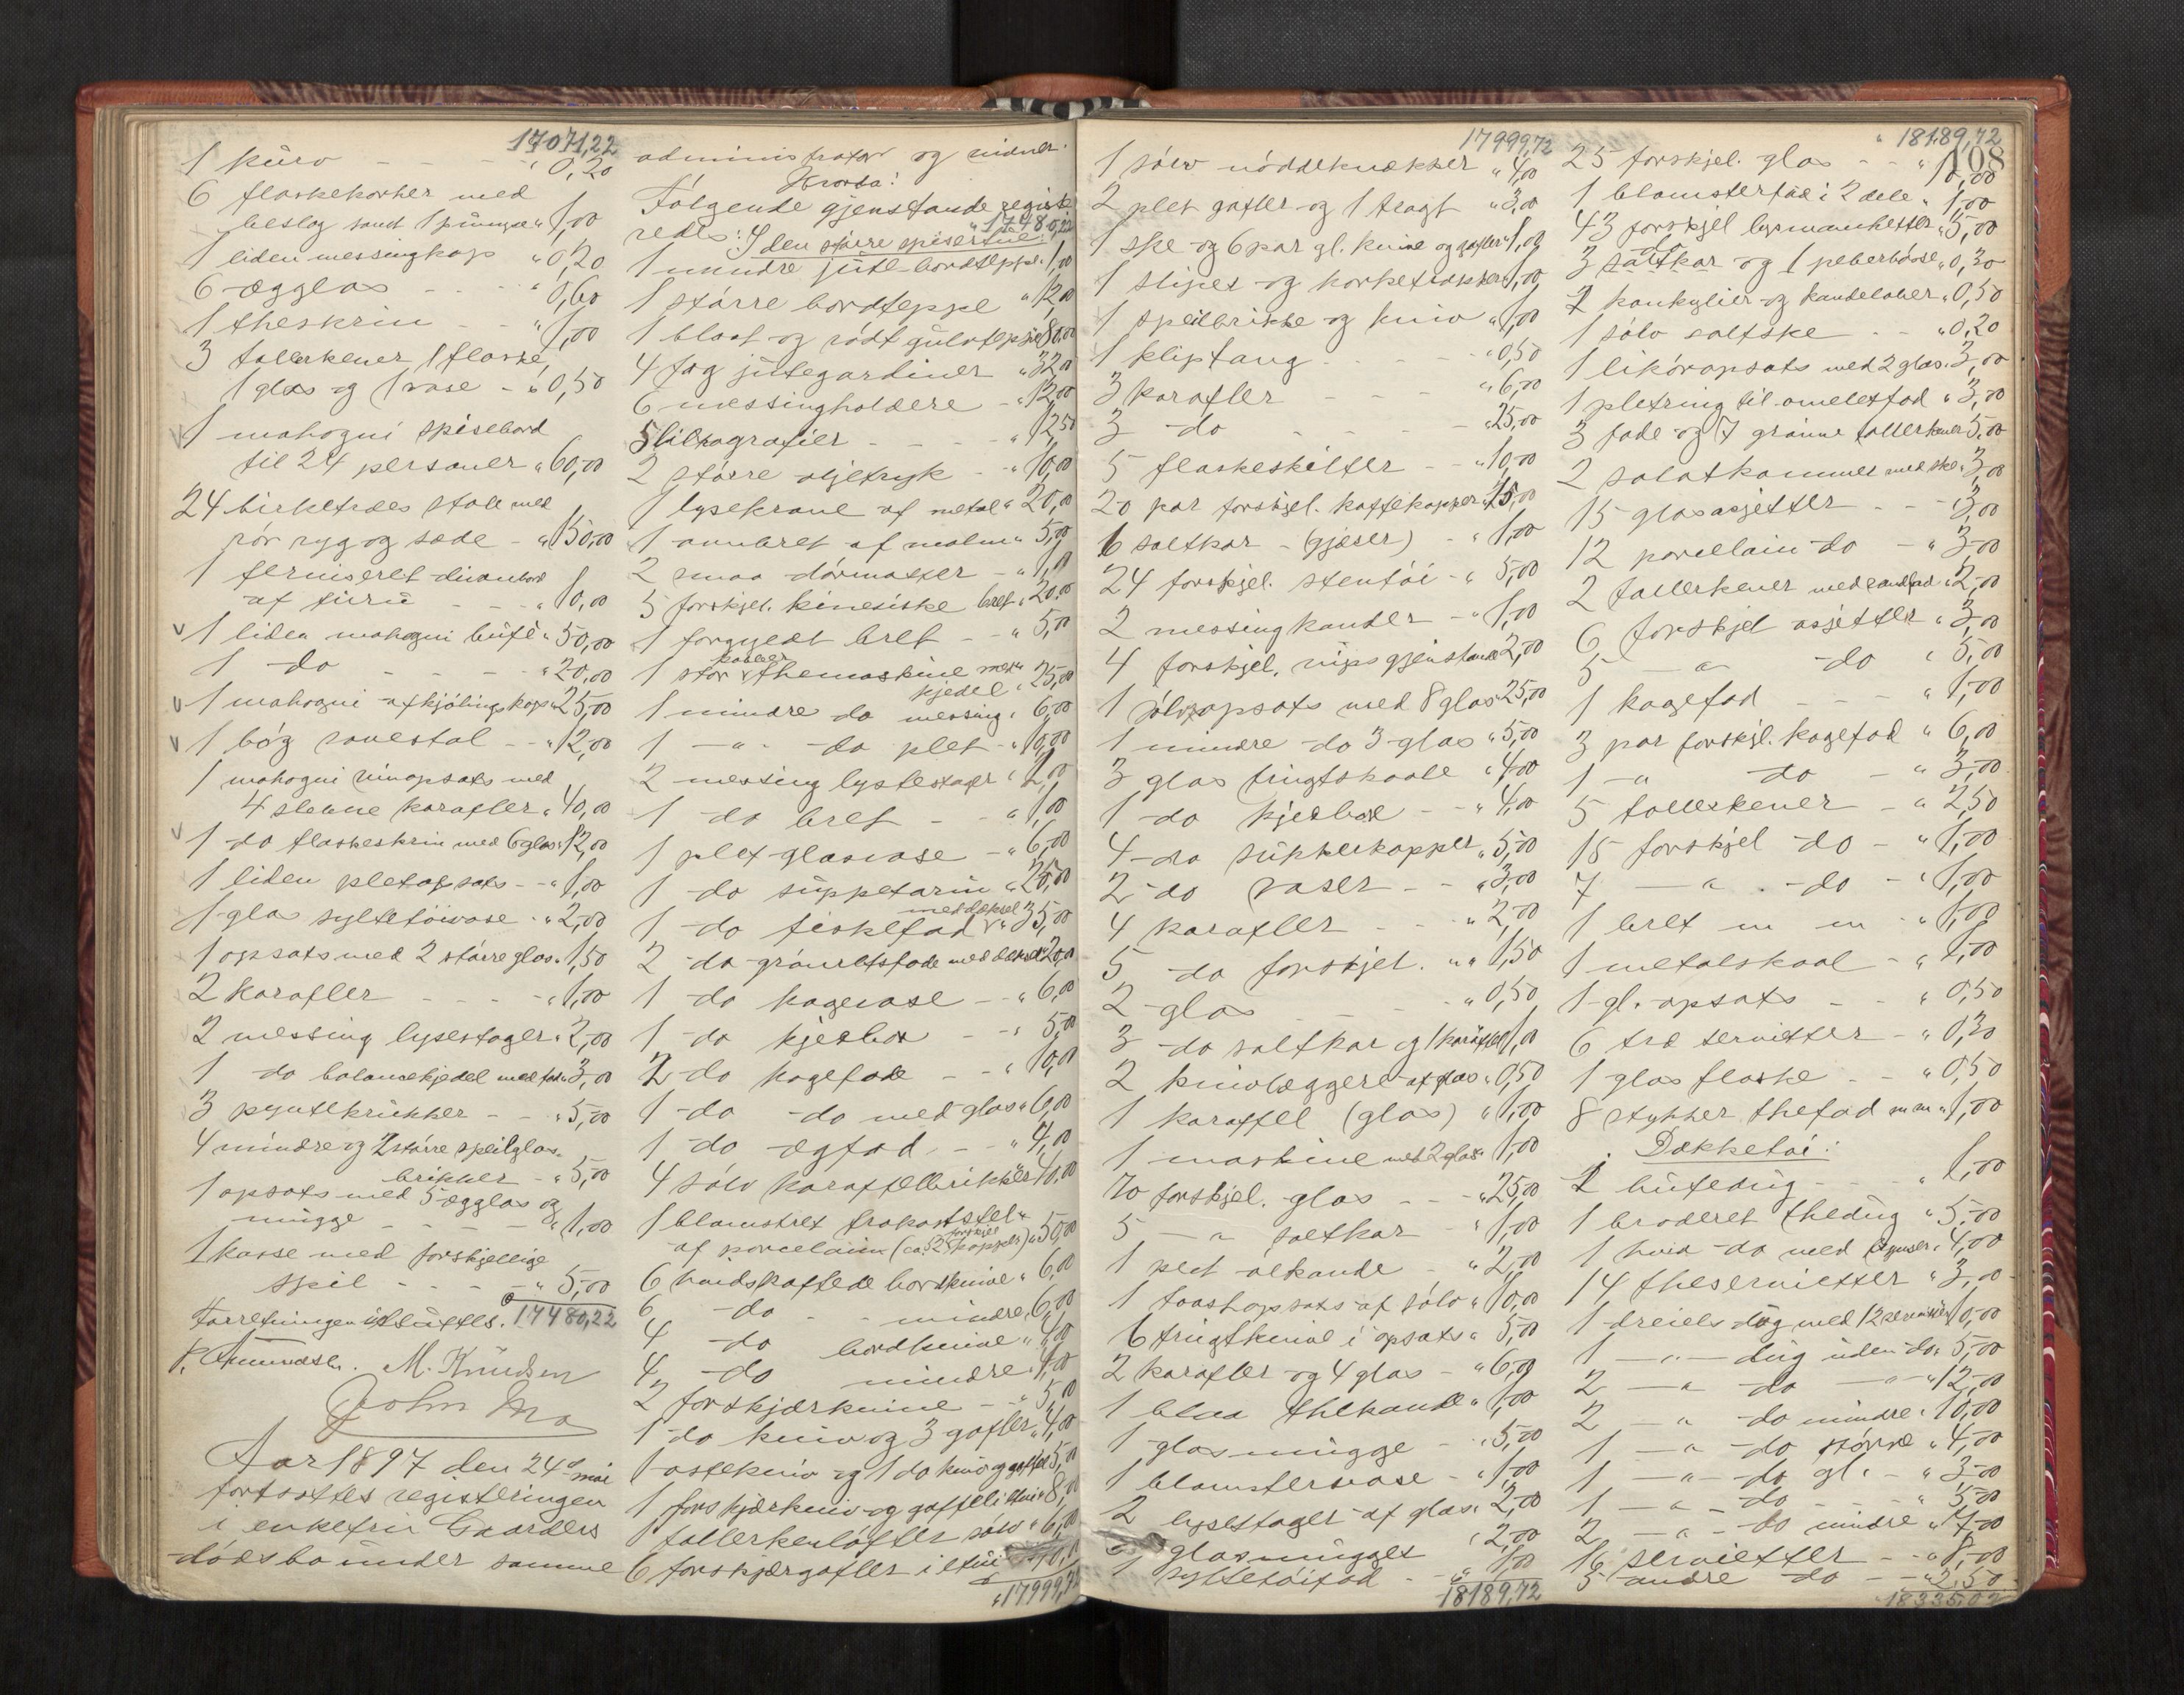 17071,22
1 kurv - - - " 0,20
6 flaskekorker med
beslag samt 1 " 1,00
1 liden messingkop " 0,20
6 ægglas - - - " 0,60
1 theskrin - - " 1,00
3 tallerkener, 1 flaske,
1 glas og 1 vase - " 0,50
1 mahogni spisebord
til 24 personer " 60,00
24 birketræs stole med
rør ryg og sæde - " 150,00
1 ferniseret divanbord
af furu - - - " 10,00
1 liden mahogni büfè " 50,00
1 do - - - - " 20,00
1 mahogni afkjölings kop " 25,00
1 bög sovestol - - " 12,00
1 mahogni vinopsats med
4 slebne karafler " 40,00
1 do flaskeskrin med 6 glas " 12,00
1 liden pletopsats - - " 1,00
1 glas syltetöivase - " 2,00
1 opsats med 2 större glas " 1,50
2 karafler - - - - " 1,00
2 messing lysestager " 2,00
1 do balancekjedel med fad " 3,00
3 pyntekrukker - - " 5,00
4 mindre og 2 större speilglas-
brikker - " 5,00
1 opsats med 5 ægglas og
mugge - - - - - " 1,00
1 kasse med forskjellige
spil - - - - " 5,00
17480,22
Forretningen sluttes.
M. Knudsen
John
Aar 1897 den 24de mai
fortsattes registeringen
i enkefru Gaarders
dödsbo under samme
administrator og vidner.
Hvorda:
Følgende gjenstande registe
redes: I den større spisestue:
" 17480,22
1 mindre jüte-bordteppe " 1,00
1 större bordteppe " 12,00
1 blaat og rödt gulvteppe " 80,00
4 fag jütegardiner " 32,00
6 messingholdere - " 12,00
5 lithografier - - - - " 12,50
2 större oljetryk - - " 10,00
1 lysekrone af metal " 20,00
1 af malm " 5,00
2 smaa dörmatter - " 1,00
5 forskjel. kinesiske bret " 20,00
1 forgyldt bret - - " 5,00
1 stor kobber themaskine med
kjedel " 25,00
1 mindre do messing " 6,00
1 - " - do plet - " 10,00
2 messing lysestager " 2,00
1 do bret - - " 1,00
1 plet glasvase - " 6,00
1 do suppetarin " 25,00
1 do fiskefad med dæksel " 35,00
2 do grönretsfade med dæksel " 20,00
1 do kagevase - - " 6,00
1 do kjexbox - - " 5,00
2 do kagefade - - " 10,00
1 do do med glas " 6,00
1 do ægfad - - " 4,00
4 sölv karaffelbrikker " 10,00
1 blomstret frokoststel
af porcelain (ca 52 forskjel kopper) " 50,00
6 hvidskaftede bordknive " 6,00
6 do - - mindre " 6,00
4 do bordknive " 4,00
4 do mindre " 4,00
2 forskjærknive - - " 5,00
1 do kniv og 3 gafler " 4,00
1 ostekniv og 1 do kniv og gaffel " 5,00
1 forskjærkniv og gaffel i etui " 8,00
1 tallerkenløfter sölv " 6,00
6 forskjærgafler i etui
" 17999,72
17999,72
1 sölv nöddeknækker " 4,00
2 plet gafler og 1 tragt " 3,00
1 ske og 6 par gl. knive og gafler " 1,00
1 slipes og korketrækker " 1,00
1 speilbrikke og kniv " 1,00
1 kliptang - - - - " 0,50
3 karafler - - - " 6,00
3 do - - - - " 25,00
5 flaskeskilter - - " 10,00
20 par forskjel. kaffekopper " 15,00
6 saltkar - (gjæser) - " 1,00
24 forskjel. stentöi - " 5,00
2 messingkander - " 1,00
4 forskjel. nipsgjenstande " 2,00
1 sölvopsats med 8 glas " 25,00
1 mindre do 3 glas " 5,00
3 glas frugtskaale " 4,00
1 do kjexbox - - " 4,00
4 do sukkerkopper " 5,00
2 do vaser - - " 3,00
4 karafler - - " 2,00
5 do forskjel. " 1,50
2 glas - - - " 0,50
3 do saltkar og 1 karaffel " 1,00
2 knivlæggere af glas " 0,50
1 karaffel (glas) " 1,00
1 maskine med 2 glas " 1,00
70 forskjel. glas - - - " 25,00
5 - " saltkar - " 1,00
1 plet olkande - " 2,00
1 toastopsats af sölv " 10,00
6 frugtknive i opsats " 5,00
2 karafler og 4 glas - " 6,00
1 blaa thekande " 1,00
1 glasmugge - " 5,00
1 blomstervase - " 1,00
2 lysestager af glas " 2,00
glasmugger " 2,00
1 syltetöifad - " 1,00
18189,72
" 18189,72
108
25 forskjel. glas - - " 10,00
1 blomsterfad i 2 dele " 1,00
43 forskjel lysmanketter " 5,00
3 do saltkar og 1 peberbøsse " 0,30
2 konkylier og kandelaber " 0,50
1 sölv saltske - - " 0,20
1 likøropsats med 2 glas " 3,00
1 pletring til omeletfad " 3,00
3 fade og 7 grønne tallerkener " 5,00
2 salatkommer med ske " 3,00
15 glasasjetter - - " 3,00
12 porcellain do - " 3,00
2 tallerkener med " 2,00
6 forskjel asjetter " 3,00
5 - " - do " 5,00
1 kagefad - - " 1,00
3 par forskjl. kagefad " 6,00
1 - " - do - " 3,00
5 tallerkener - " 2,50
15 forskjel do - " 1,00
7 - " - do - " 1,00
1 bret m m - " 1,00
1 metalskaal - " 1,00
1 gl. opsats - - " 0,50
6 træ servietter - " 0,30
1 glas flaske - - " 0,50
8 stykker thefad m m " 1,00
Dækketøi:
1 bufedug - - - " 1,00
1 broderet thedug " 5,00
1 hvid do med " 4,00
14 theservietter " 3,00
1 dreiels dug med 12 servietter " 10,00
1 - " - dug uden do " 5,00
2 - " - do - " - " 12,00
2 - " - do mindre " 10,00
1 - " - do större " 4,00
1 - " - do gl. - " 3,00
1 - " - do - - - " 5,00
2 - " - do mindre " 4,00
16 servietter - - " 8,00
5 andre do - - " 2,50
18335,02